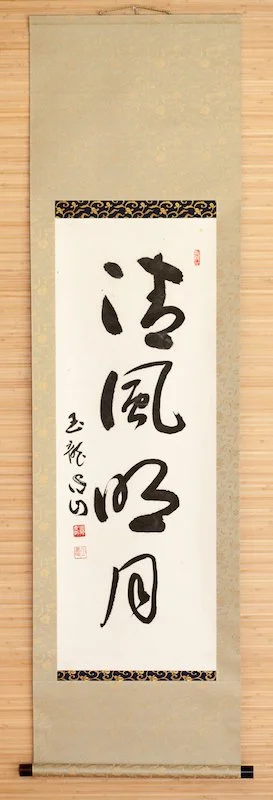 清風明月
玉龍